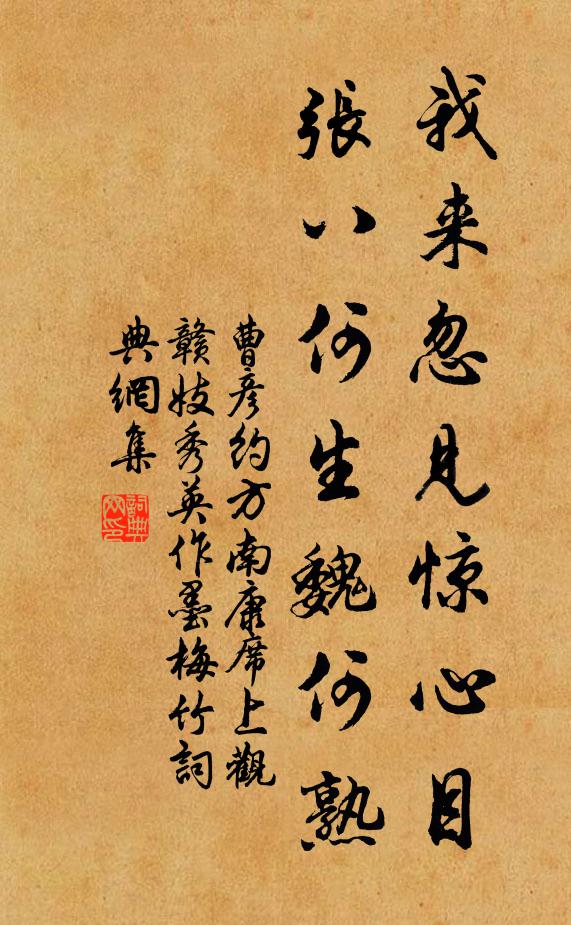 我来忽見惊心目
張八何生魏何熟
曹彦約方南康席上觀
贛妓秀英作墨梅竹詞
典網集
詞典网印